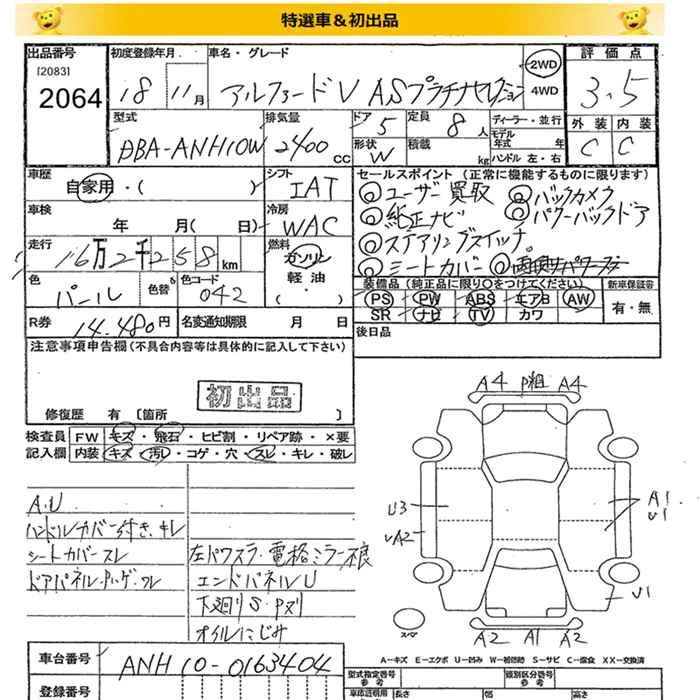 特選車＆初出品
出品番号
[2083]
2064
初度登録年月
18 11月
車名・グレード
アルファードV ASプラチナセレクション
2WD
4WD
評価点
3.5
外装 内装
C C
型式
DBA-ANH10W
排気量
2400 CC
ドア 5
定員 8人
形状 W
積載 kg
ディーラー・並行
モデル年式 年
ハンドル 左・右
車歴
自家用・( )
シフト
IAT
車検
年 月( 日)
冷房
WAC
走行
16万2千258km
燃料
ガソリン
軽油
・( )
色
パール
色替
色コード
042
R券
14.480円
名変通知期限 月 日
セールスポイント (正常に機能するものに限ります)
◎ユーザー買取 ◎バックカメラ
◎純正ナビ ◎パワーバックドア
◎ステアリングスイッチ。
◎シートカバー ◎
装備品 (純正品に限り○をつけてください)
新車保証書
PS PW ABS エアB AW
SR ナビ TV カワ
有・無
後日品
注意事項申告欄(不具合内容等は具体的に記入して下さい)
初出品
修復歴 有 [箇所 ]
検査員
記入欄
FW キズ・飛石・ヒビ割・リペア跡・×要
内装 キズ・汚レ・コゲ・穴・スレ・キレ・破レ
A.U
ハンドルカバー付き.キレ
シートカバースレ
ドアパネル.ハゲ.ワレ
左パワスラ.電格ミラー不良
エンドパネルU
下廻りS・Pヌリ
オイルにじみ
A4 P粗 A4
U3
UA2
A1
U1
U1
スペア
A2 A1 A2
A－キズ E－エクボ U－凹み W－補修跡 S－サビ C－腐食 XX－交換済
車台番号
ANH10-0163404
登録番号
型式指定番号
参考
類別区分番号
参考
車寸証明用
参考
長さ
幅
高さ